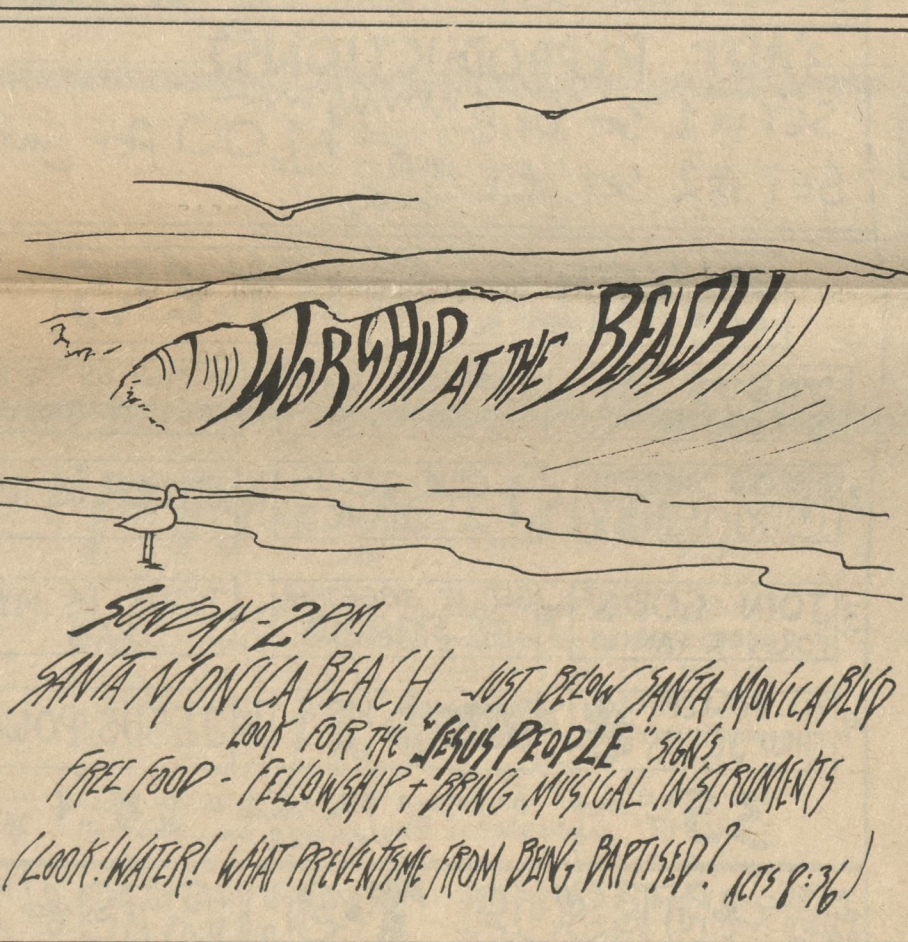 WORSHIP AT THE BEACH
SUNDAY - 2 PM
SANTA MONICA BEACH, JUST BELOW SANTA MONICA BLVD
LOOK FOR THE "JESUS PEOPLE" SIGNS
FREE FOOD - FELLOWSHIP + BRING MUSICAL INSTRUMENTS
(LOOK! WATER! WHAT PREVENTS ME FROM BEING BAPTISED? ACTS 8:36)